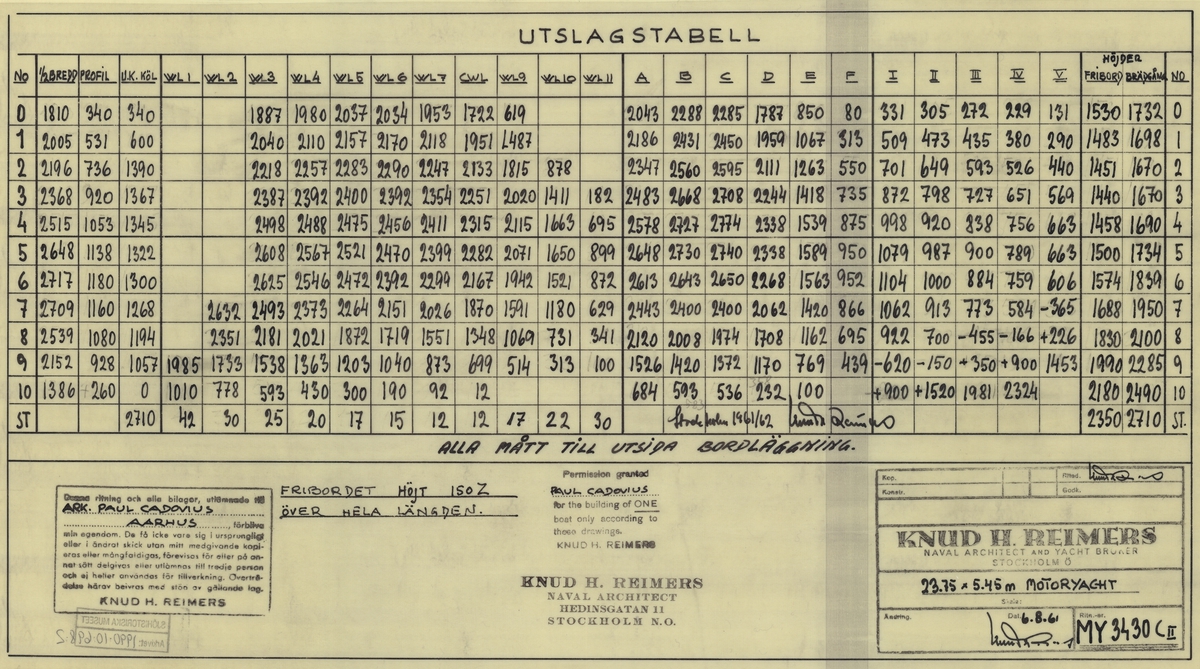 UTSLAGSTABELL
HÖJDER
No ½BREDD PROFIL U.K. KÖL WL1 WL2 WL3 WL4 WL5 WL6 WL7 CWL WL9 WL10 WL11 A B C D E F I II III IV V FRIBORD BRÄDGÅNG NO
0 1810 340 340 1887 1980 2037 2034 1953 1722 619 2043 2288 2285 1787 850 80 331 305 272 229 131 1530 1732 0
1 2005 531 600 2040 2110 2157 2170 2118 1951 1487 2186 2431 2450 1959 1067 313 509 473 435 380 290 1483 1698 1
2 2196 736 1390 2218 2257 2283 2290 2247 2133 1815 878 2347 2560 2595 2111 1263 550 701 649 593 526 440 1451 1670 2
3 2368 920 1367 2387 2392 2400 2392 2354 2251 2020 1411 182 2483 2668 2708 2244 1418 735 872 798 727 651 569 1440 1670 3
4 2515 1053 1345 2498 2488 2475 2456 2411 2315 2115 1663 695 2578 2727 2774 2338 1539 875 998 920 838 756 663 1458 1690 4
5 2648 1138 1322 2608 2567 2521 2470 2399 2282 2071 1650 899 2648 2730 2740 2338 1589 950 1079 987 900 789 663 1500 1734 5
6 2717 1180 1300 2625 2546 2472 2392 2299 2167 1942 1521 872 2613 2643 2650 2268 1563 952 1104 1000 884 759 606 1574 1839 6
7 2709 1160 1268 2632 2493 2373 2264 2151 2026 1870 1591 1180 629 2443 2400 2400 2062 1420 866 1062 913 773 584 -365 1688 1950 7
8 2539 1080 1194 2351 2181 2021 1872 1719 1551 1348 1069 731 341 2120 2008 1974 1708 1162 695 922 700 -455 -166 +226 1830 2100 8
9 2152 928 1057 1985 1733 1538 1363 1203 1040 873 699 514 313 100 1526 1420 1372 1170 769 439 -620 -150 +350 +900 1453 1990 2285 9
10 1386 +260 0 1010 778 593 430 300 190 92 12 684 593 536 232 100 +900 +1520 1981 2324 2180 2490 10
ST 2710 42 30 25 20 17 15 12 12 17 22 30 Stockholm 1961/62 Knud Reimers 2350 2710 ST.
ALLA MÅTT TILL UTSIDA BORDLÄGGNING.
Dessa ritning och alla bilagor, utlämnade till
ARK. PAUL CADOVIUS
AARHUS, förbliva
min egendom. De få icke vare sig i ursprungligt
eller i ändrat skick utan mitt medgivande kopi-
eras eller mångfaldigas, förevisas för eller på an-
nat sätt delgivas eller utlämnas till tredje person
och ej heller användas för tillverkning. Överträ-
delse härav beivras med stöd av gällande lag.
KNUD H. REIMERS
SJÖHISTORISKA MUSEET
1990-10-0
Arkivet
FRIBORDET HÖJT 150Z
ÖVER HELA LÄNGDEN.
Permission granted
PAUL CADOVIUS
for the building of ONE
boat only according to
these drawings.
KNUD H. REIMERS
KNUD H. REIMERS
NAVAL ARCHITECT
HEDINSGATAN 11
STOCKHOLM N.O.
Kop. Ritad.
Konstr. Godk.
KNUD H. REIMERS
NAVAL ARCHITECT AND YACHT BROKER
STOCKHOLM Ö
23.75 x 5.45 m MOTORYACHT
Skala:
Ändring. Dat. 6.8.61 Ritn.-nr.
MY 3430 C II